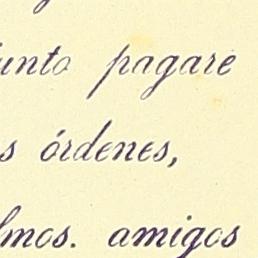 junto pagare
s órdenes,
lmos. amigos